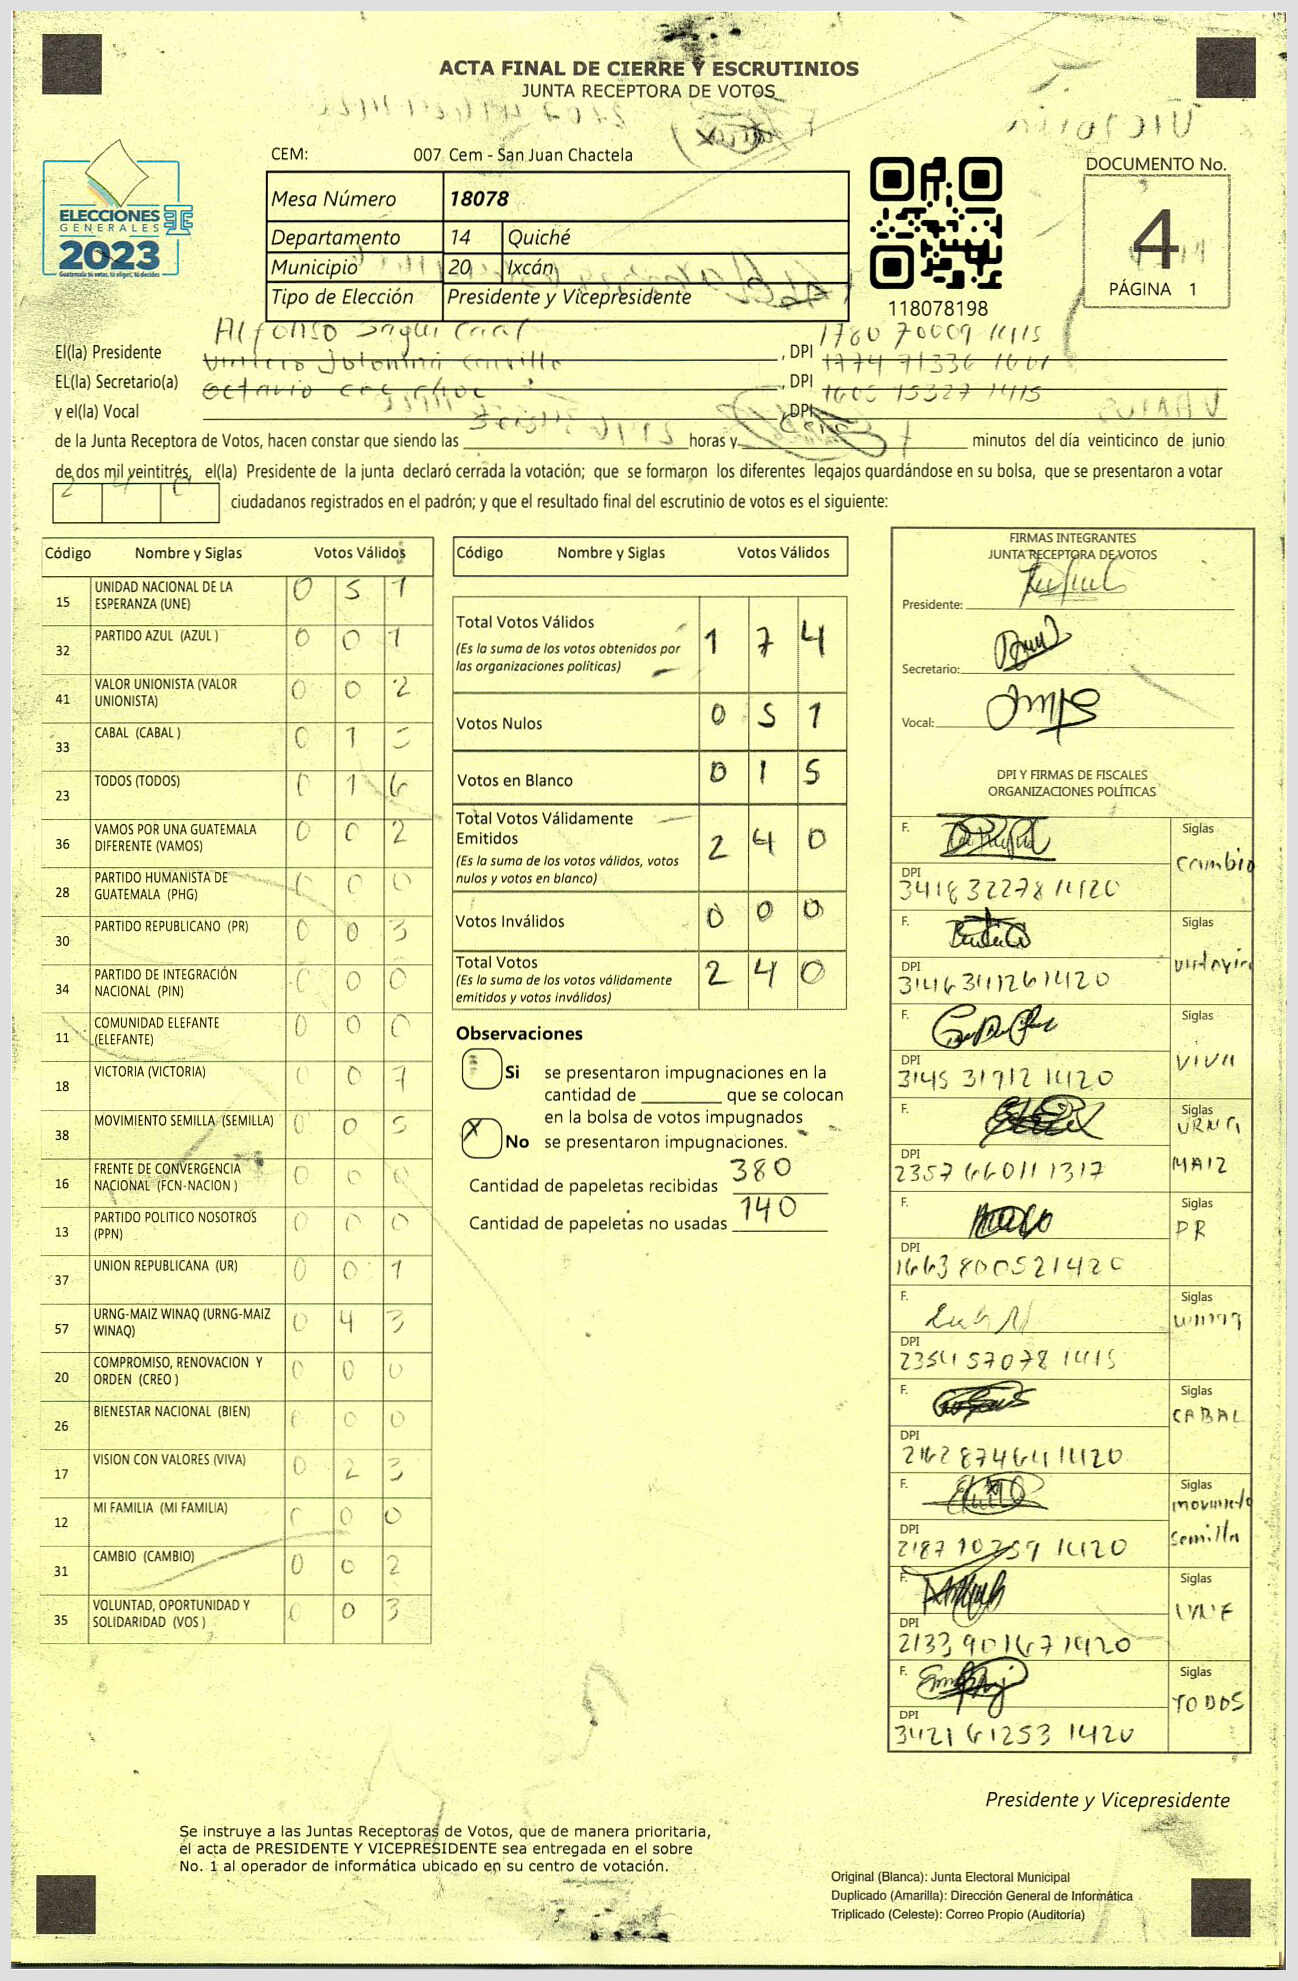 ACTA FINAL DE CIERRE Y ESCRUTINIOS
JUNTA RECEPTORA DE VOTOS
CEM: 007 Cem - San Juan Chactela
DOCUMENTO No.
4
PÁGINA 1
ELECCIONES
GENERALES
2023
Guatemala tú votas, tú eliges, tú decides
Mesa Número 18078
Departamento 14 Quiché
Municipio 20 Ixcán
Tipo de Elección Presidente y Vicepresidente
118078198
Alfonso
El(la) Presidente , DPI
EL(la) Secretario(a) Octavio , DPI
y el(la) Vocal , DPI
de la Junta Receptora de Votos, hacen constar que siendo las horas y minutos del día veinticinco de junio
de dos mil veintitrés, el(la) Presidente de la junta declaró cerrada la votación; que se formaron los diferentes legajos guardándose en su bolsa, que se presentaron a votar
2 4 0 ciudadanos registrados en el padrón; y que el resultado final del escrutinio de votos es el siguiente:
Código Nombre y Siglas Votos Válidos
15 UNIDAD NACIONAL DE LA ESPERANZA (UNE) 0 5 1
32 PARTIDO AZUL (AZUL ) 0 0 1
41 VALOR UNIONISTA (VALOR UNIONISTA) 0 0 2
33 CABAL (CABAL ) 0 1 5
23 TODOS (TODOS) 0 1 6
36 VAMOS POR UNA GUATEMALA DIFERENTE (VAMOS) 0 0 2
28 PARTIDO HUMANISTA DE GUATEMALA (PHG) 0 0 0
30 PARTIDO REPUBLICANO (PR) 0 0 3
34 PARTIDO DE INTEGRACIÓN NACIONAL (PIN) 0 0 0
11 COMUNIDAD ELEFANTE (ELEFANTE) 0 0 0
18 VICTORIA (VICTORIA) 0 0 7
38 MOVIMIENTO SEMILLA (SEMILLA) 0 0 5
16 FRENTE DE CONVERGENCIA NACIONAL (FCN-NACION ) 0 0 0
13 PARTIDO POLITICO NOSOTROS (PPN) 0 0 0
37 UNION REPUBLICANA (UR) 0 0 1
57 URNG-MAIZ WINAQ (URNG-MAIZ WINAQ) 0 4 3
20 COMPROMISO, RENOVACION Y ORDEN (CREO ) 0 0 0
26 BIENESTAR NACIONAL (BIEN) 0 0 0
17 VISION CON VALORES (VIVA) 0 2 3
12 MI FAMILIA (MI FAMILIA) 0 0 0
31 CAMBIO (CAMBIO) 0 0 2
35 VOLUNTAD, OPORTUNIDAD Y SOLIDARIDAD (VOS ) 0 0 3
Código Nombre y Siglas Votos Válidos
Total Votos Válidos 1 7 4
(Es la suma de los votos obtenidos por
las organizaciones políticas)
Votos Nulos 0 5 1
Votos en Blanco 0 1 5
Total Votos Válidamente
Emitidos 2 4 0
(Es la suma de los votos válidos, votos
nulos y votos en blanco)
Votos Inválidos 0 0 0
Total Votos 2 4 0
(Es la suma de los votos válidamente
emitidos y votos inválidos)
Observaciones
Si se presentaron impugnaciones en la
cantidad de que se colocan
en la bolsa de votos impugnados
X No se presentaron impugnaciones.
Cantidad de papeletas recibidas 380
Cantidad de papeletas no usadas 140
FIRMAS INTEGRANTES
JUNTA RECEPTORA DE VOTOS
Presidente:
Secretario:
Vocal:
DPI Y FIRMAS DE FISCALES
ORGANIZACIONES POLÍTICAS
F. Siglas
cambio
DPI
F. Siglas
DPI
F. Siglas
VIVA
DPI
3145 31712 1420
F. Siglas
URNG
MAIZ
DPI
2357 66011 1317
F. Siglas
PR
DPI
1663 80052 1420
F. Siglas
DPI
2354 57078 1415
F. Siglas
CABAL
DPI
2162 87464 1420
F. Siglas
movimiento
semilla
DPI
F. Siglas
UNE
DPI
2133 90167 1420
F. Siglas
TODOS
DPI
3421 61253 1420
Presidente y Vicepresidente
Se instruye a las Juntas Receptoras de Votos, que de manera prioritaria,
el acta de PRESIDENTE Y VICEPRESIDENTE sea entregada en el sobre
No. 1 al operador de informática ubicado en su centro de votación.
Original (Blanca): Junta Electoral Municipal
Duplicado (Amarilla): Dirección General de Informática
Triplicado (Celeste): Correo Propio (Auditoría)